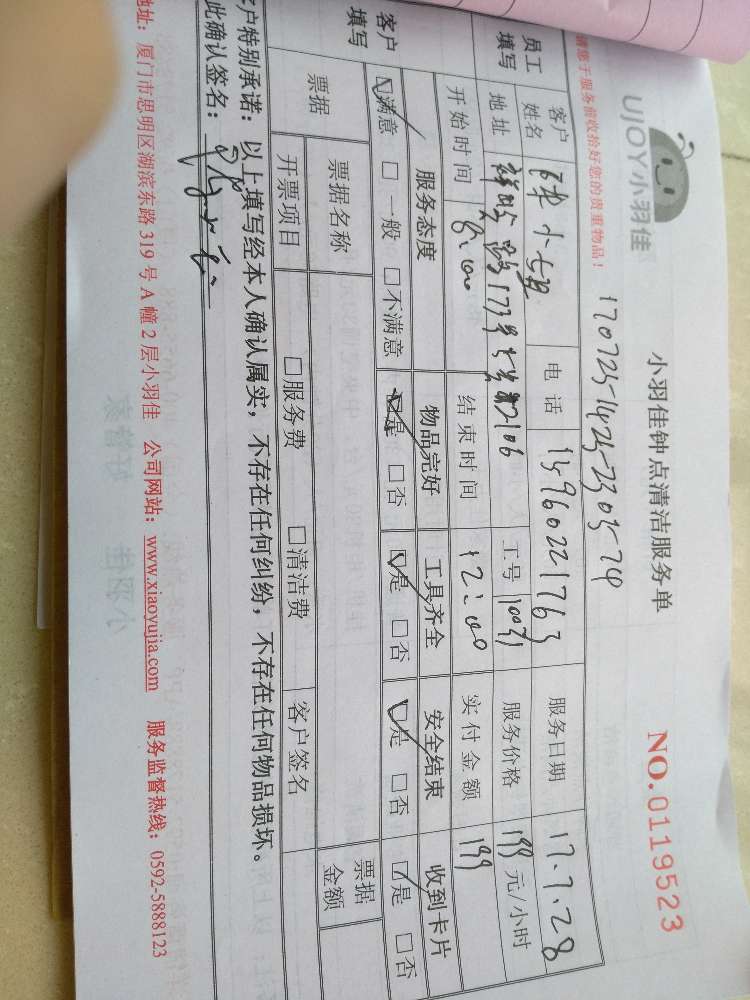 UJOY小羽佳
小羽佳钟点清洁服务单
NO.0119523
请您于服务前收拾好您的贵重物品！
170725-1425-230574
员工填写 客户姓名 小姐 电话 15960221763 服务日期 17.7.28
地址 173号 2106 工号 服务价格 199 元/小时
开始时间 8:00 结束时间 12:00 实付金额 199
客户填写 服务态度 物品完好 工具齐全 安全结束 收到卡片
☑满意 □一般 □不满意 ☑是 □否 ☑是 □否 ☑是 □否 ☑是 □否
票据 票据名称 票据金额
开票项目 □服务费 □清洁费 客户签名
客户特别承诺：以上填写经本人确认属实，不存在任何纠纷，不存在任何物品损坏。
此确认签名：
地址：厦门市思明区湖滨东路319号A幢2层小羽佳 公司网站：www.xiaoyujia.com 服务监督热线：0592-5888123